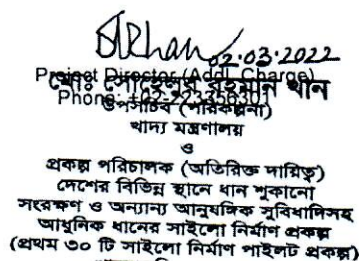 02.03.2022
Project Director (Addl. Charge)
মোঃ সোহেলুর রহমান খান
Phone: +02-223356301
উপসচিব (পরিকল্পনা)
খাদ্য মন্ত্রণালয়
ও
প্রকল্প পরিচালক (অতিরিক্ত দায়িত্ব)
দেশের বিভিন্ন স্থানে ধান শুকানো
সংরক্ষণ ও অন্যান্য আনুষঙ্গিক সুবিধাদিসহ
আধুনিক ধানের সাইলো নির্মাণ প্রকল্প
(প্রথম ৩০ টি সাইলো নির্মাণ পাইলট প্রকল্প)